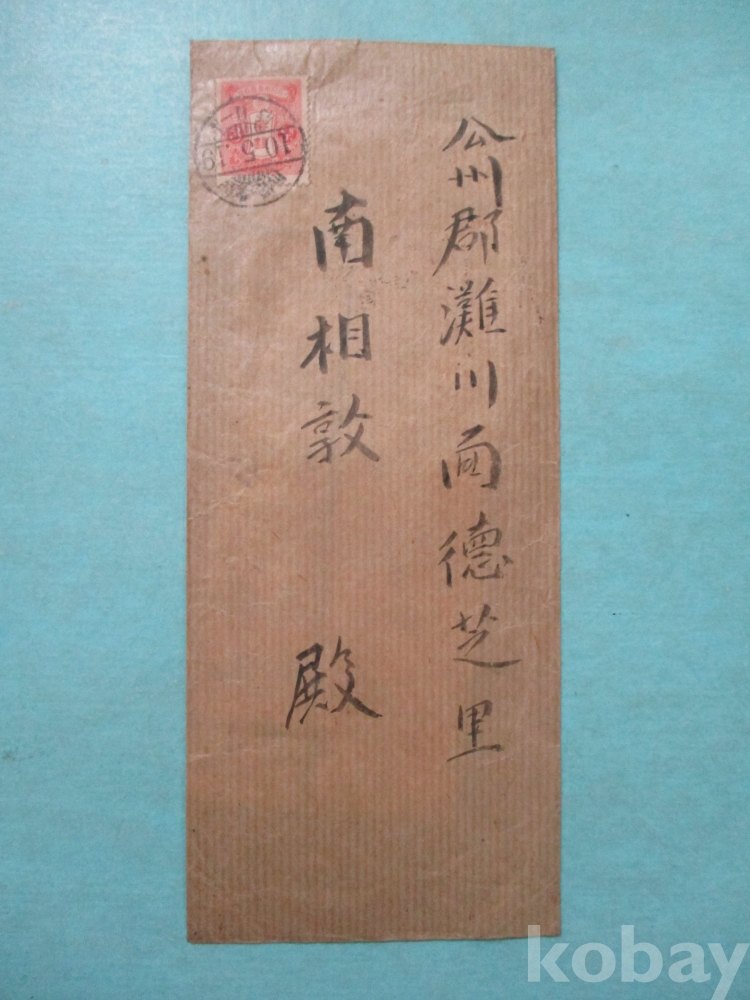 公州郡灘川面德芝里
南相敦 殿
10.5.19
kobay